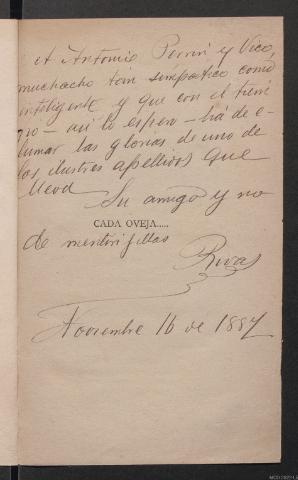 A Antonio Perrin y Vico,
muchacho tan simpatico como
inteligente y que con el tiem
po — asi lo espero — há de e-
lumar las glorias de uno de
los ilustres apellidos que
lleva
Su amigo y no
CADA OVEJA.....
de mentirijillas
Rivas
Noviembre 16 de 1887